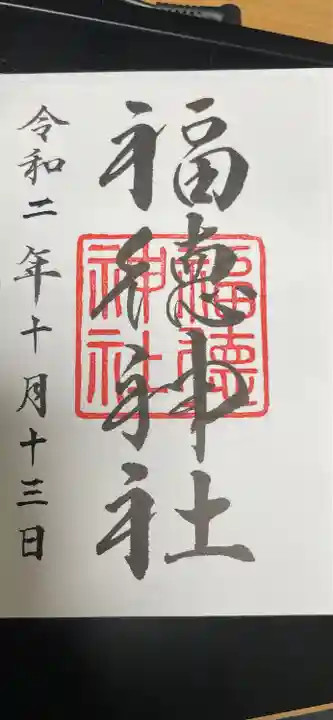 福徳神社
福徳神社
令和二年十月十三日